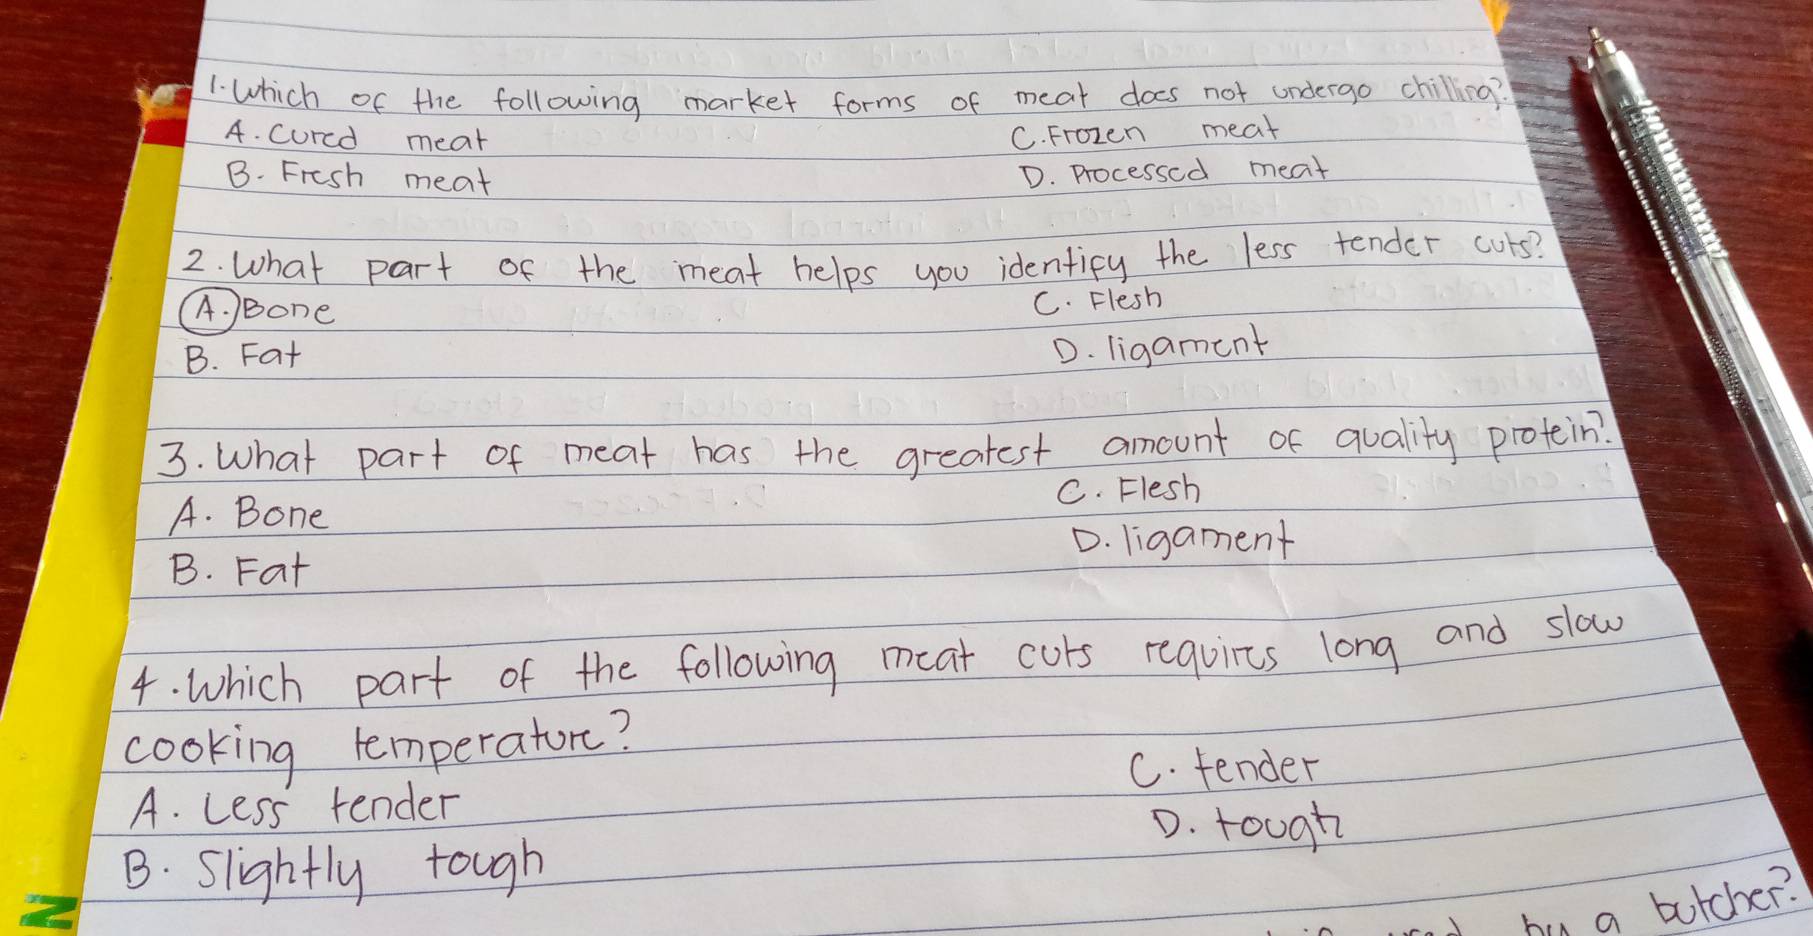 1. Which of the following market forms of meat does not undergo chilling?
A. Cured meat
C. Frozen meat
B. Fresh meat
D. Processed meat
2. What part of the meat helps you identify the less tender cuts?
A. Bone
C. Flesh
B. Fat
D. ligament
3. What part of meat has the greatest amount of quality protein?
A. Bone
C. Flesh
B. Fat
D. ligament
4. Which part of the following meat cuts requires long and slow
cooking temperature?
A. Less tender
C. tender
B. Slightly tough
D. tough
by a butcher?
N